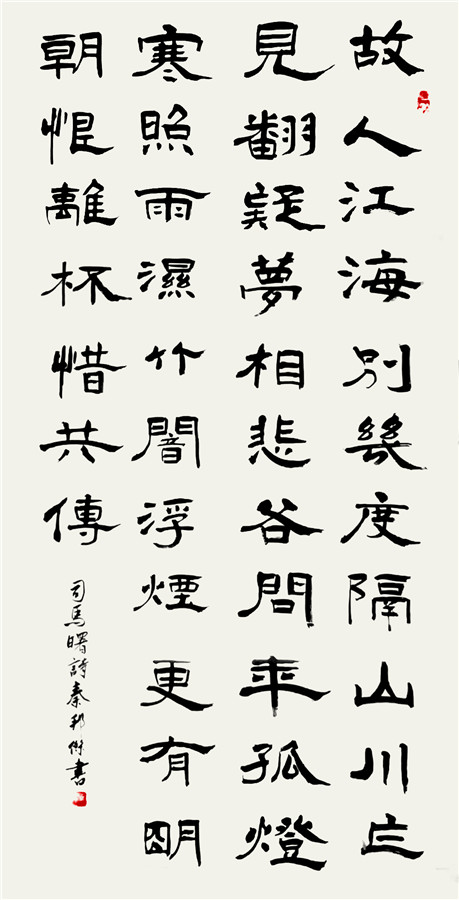 故人江海別幾度隔山川乍
見翻疑夢相悲各問年孤燈
寒照雨濕竹闇浮煙更有明
朝恨離杯惜共傳
司馬曙詩秦邦傑書